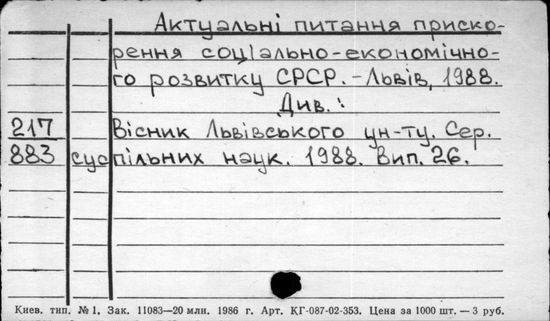 Актуальні питання приско-
рення соціально-економічно-
го розвитку СРСР. - Львів, 1988.
Див.:
217 Вісник Львівського ун-ту. Сер.
883 суспільних наук. 1988. Вип. 26.
Киев. тип. №1. Зак. 11083—20 млн. 1986 г. Арт. КГ-087-02-353. Цена за 1000 шт. — 3 руб.